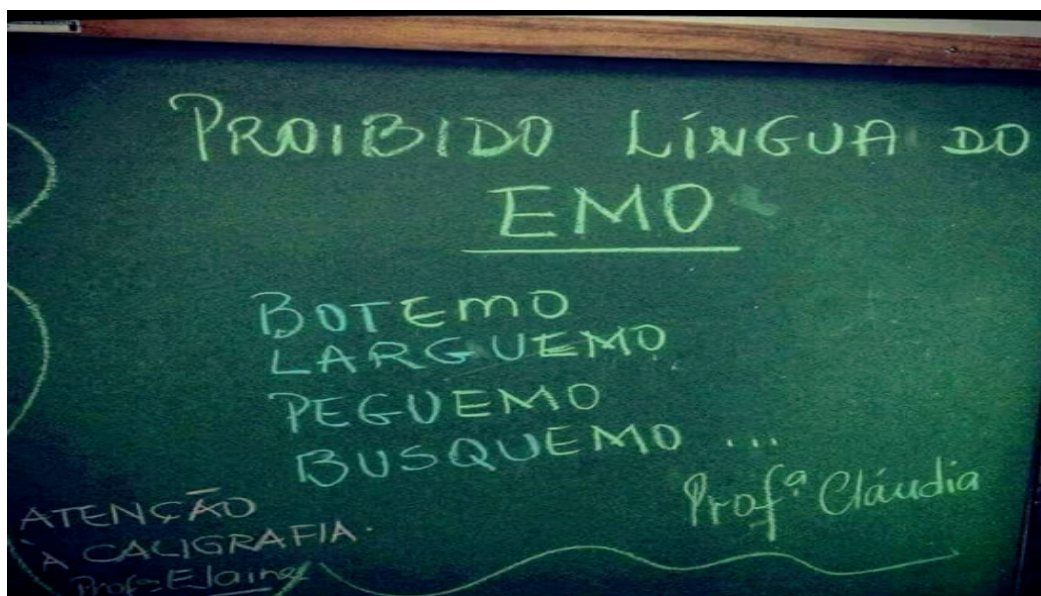 PROIBIDO LÍNGUA DO
EMO
BOTEMO
LARGUEMO
PEGUEMO
BUSQUEMO ...
Profª Cláudia
ATENÇÃO
À CALIGRAFIA.
Profª Elaine